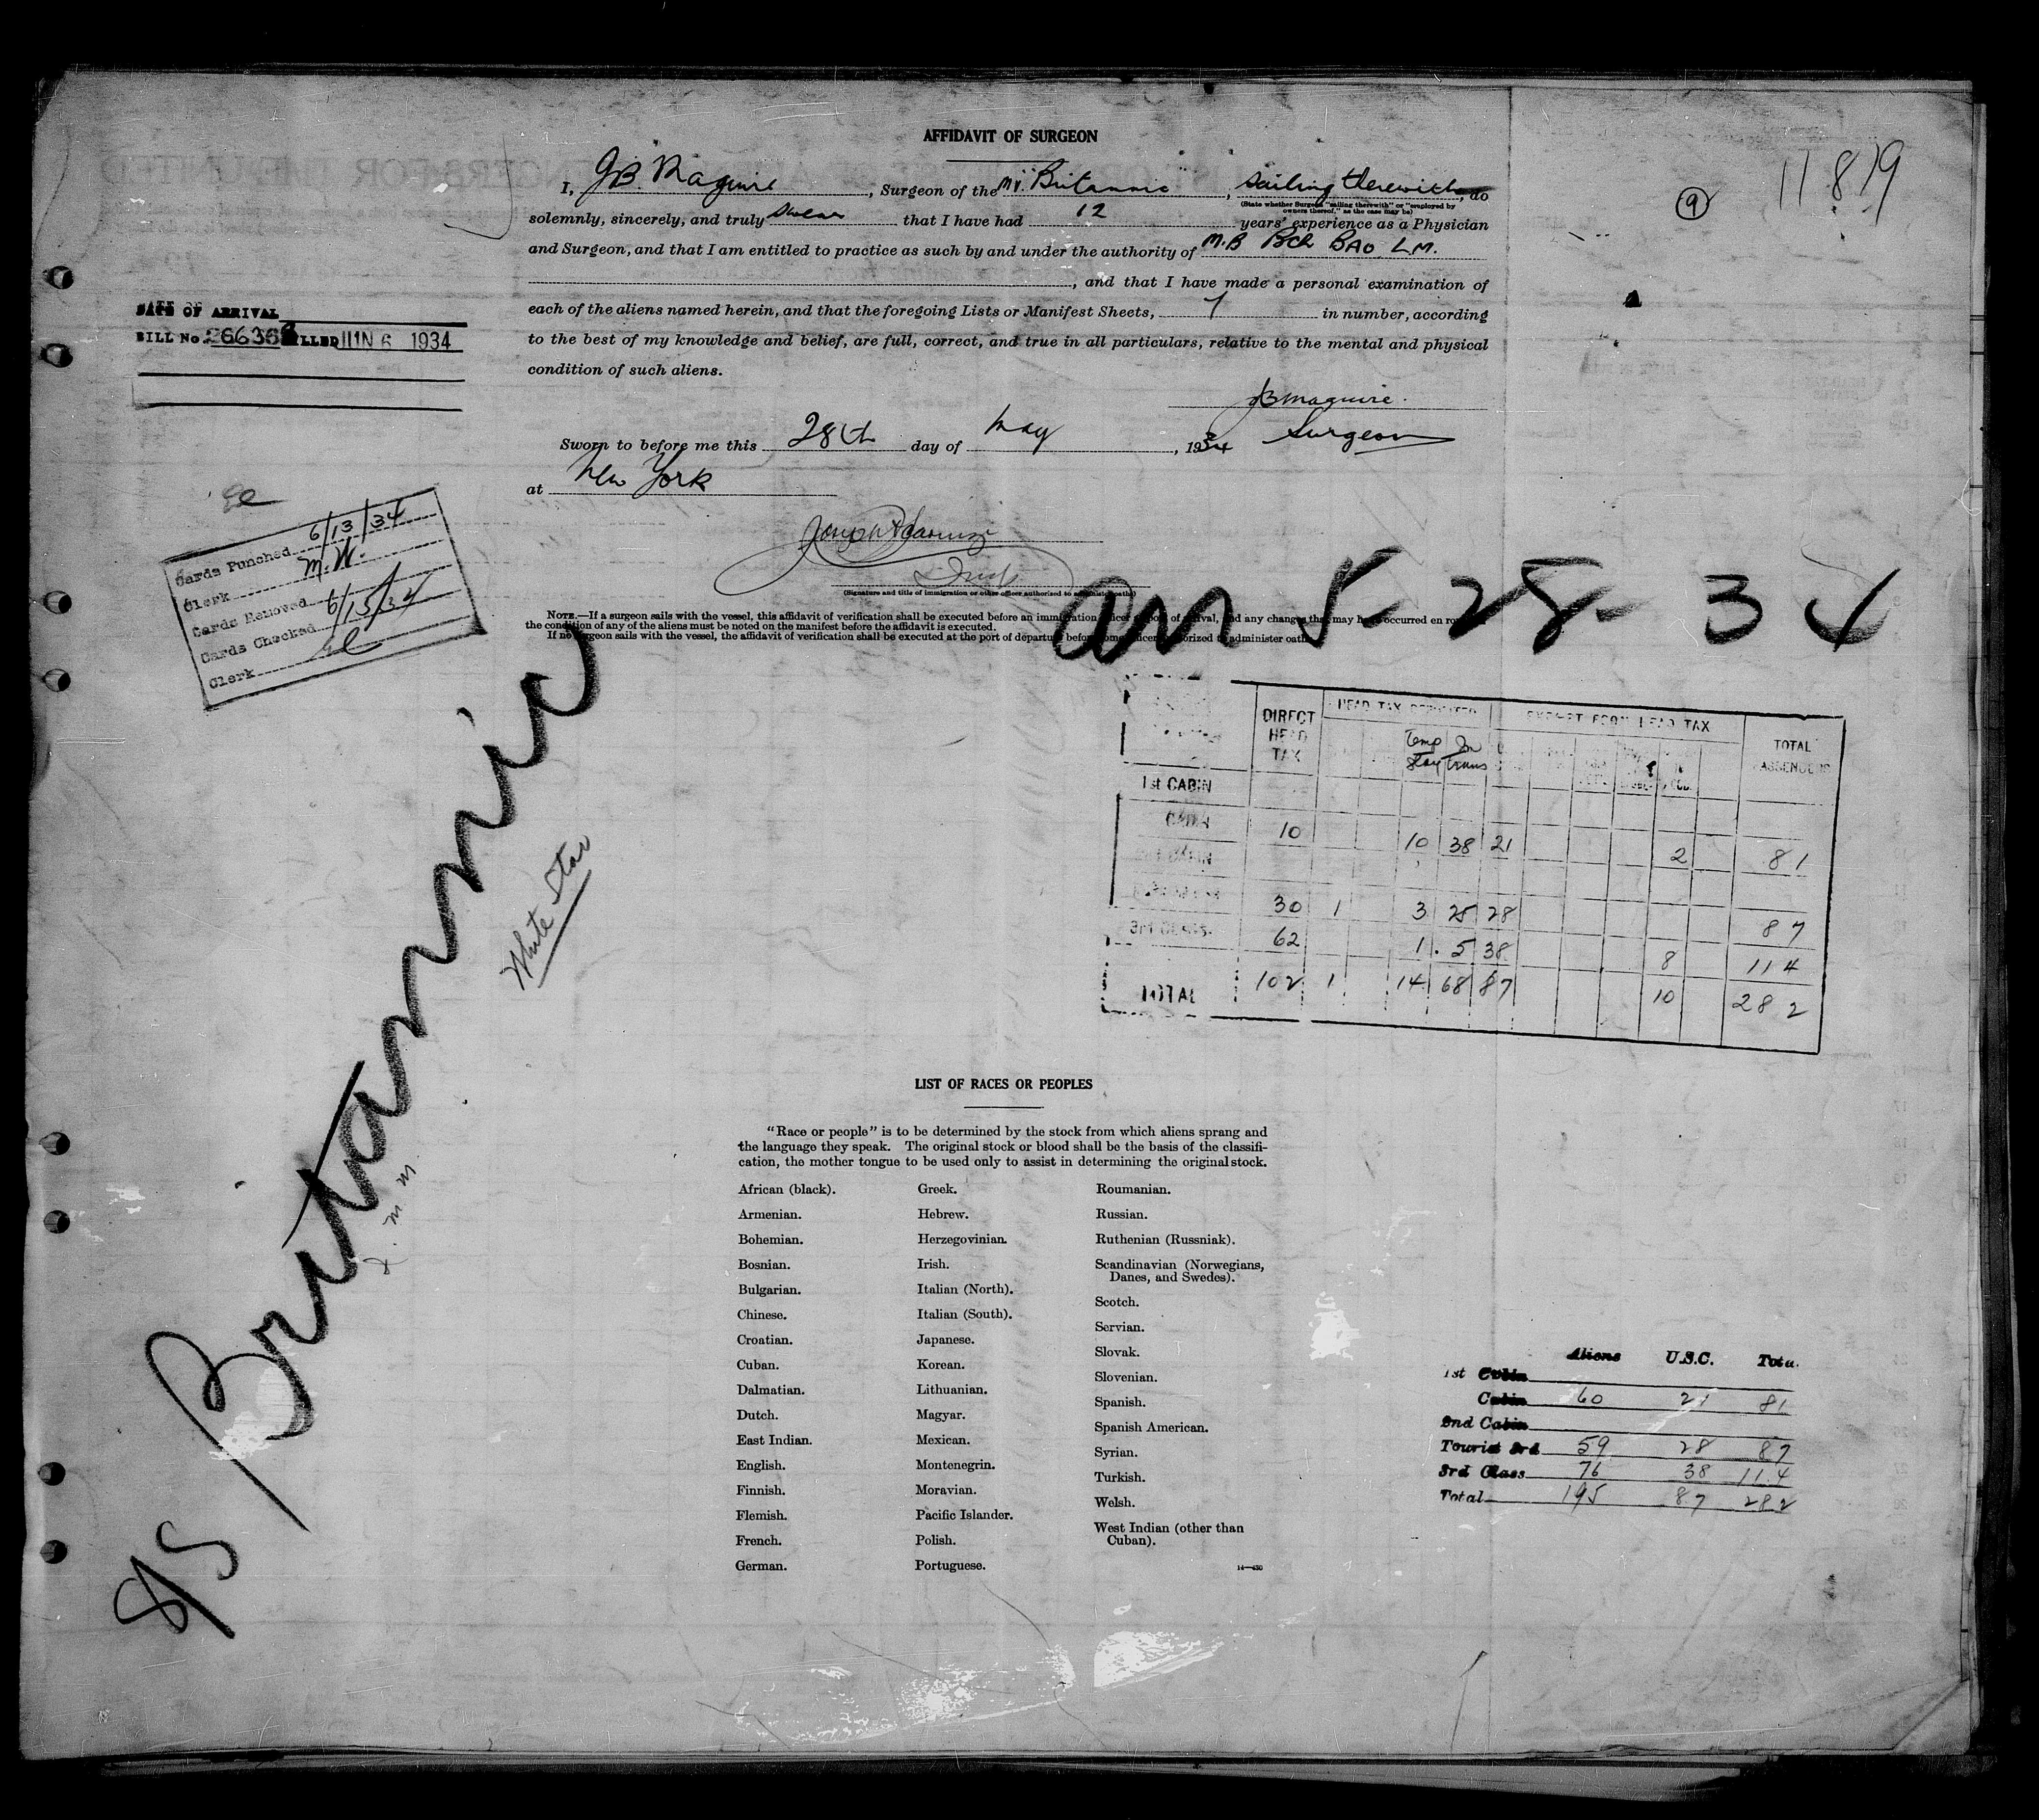 AFFIDAVIT OF SURGEON
I, JB. Maguire, Surgeon of the MV. "Britannic", sailing therewith, do
(State whether Surgeon "sailing therewith" or "employed by owners thereof," as the case may be)
solemnly, sincerely, and truly swear that I have had 12 years' experience as a Physician
and Surgeon, and that I am entitled to practice as such by and under the authority of M.B Bch BAO. L.M.
, and that I have made a personal examination of
each of the aliens named herein, and that the foregoing Lists or Manifest Sheets, 7 in number, according
to the best of my knowledge and belief, are full, correct, and true in all particulars, relative to the mental and physical
condition of such aliens.
JB Maguire.
Surgeon
Sworn to before me this 28th day of May, 1934
at New York
(Signature and title of immigration or other officer authorized to administer oaths)
NOTE.—If a surgeon sails with the vessel, this affidavit of verification shall be executed before an immigration officer at port of arrival, and any changes that may have occurred en ro
the condition of any of the aliens must be noted on the manifest before the affidavit is executed.
If no surgeon sails with the vessel, the affidavit of verification shall be executed at the port of departure before some officer authorized to administer oath
9
11819
DATE OF ARRIVAL
BILL No. FILLED JUN 6 1934
Cards Punched 6/13/34
Clerk M.W.
Cards Removed
Cards Checked 6/15/34
Clerk
arr 5-28-34
S/S Britannic
White Star
DIRECT HEAD TAX
HEAD TAX DEPOSITED
EXEMPT FROM HEAD TAX
TOTAL PASSENGERS
Temp Stay
In Trans
1st CABIN
CABIN 10 10 38 21 2 81
2nd CABIN
30 1 3 25 28 87
3rd CLASS 62 1 5 38 8 114
TOTAL 102 1 14 68 87 10 282
LIST OF RACES OR PEOPLES
"Race or people" is to be determined by the stock from which aliens sprang and
the language they speak. The original stock or blood shall be the basis of the classifi-
cation, the mother tongue to be used only to assist in determining the original stock.
African (black).
Armenian.
Bohemian.
Bosnian.
Bulgarian.
Chinese.
Croatian.
Cuban.
Dalmatian.
Dutch.
East Indian.
English.
Finnish.
Flemish.
French.
German.
Greek.
Hebrew.
Herzegovinian.
Irish.
Italian (North).
Italian (South).
Japanese.
Korean.
Lithuanian.
Magyar.
Mexican.
Montenegrin.
Moravian.
Pacific Islander.
Polish.
Portuguese.
Roumanian.
Russian.
Ruthenian (Russniak).
Scandinavian (Norwegians,
Danes, and Swedes).
Scotch.
Servian.
Slovak.
Slovenian.
Spanish.
Spanish American.
Syrian.
Turkish.
Welsh.
West Indian (other than
Cuban).
14—430
Aliens U.S.C. Total
1st Cabin
Cabin 60 21 81
2nd Cabin
Tourist 3rd 59 28 87
3rd Class 76 38 114
Total 195 87 282